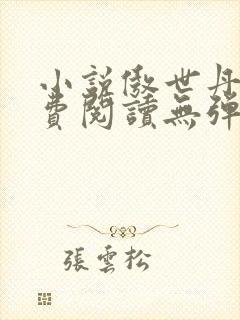 小說傲世丹
費閱讀無彈
張雲松